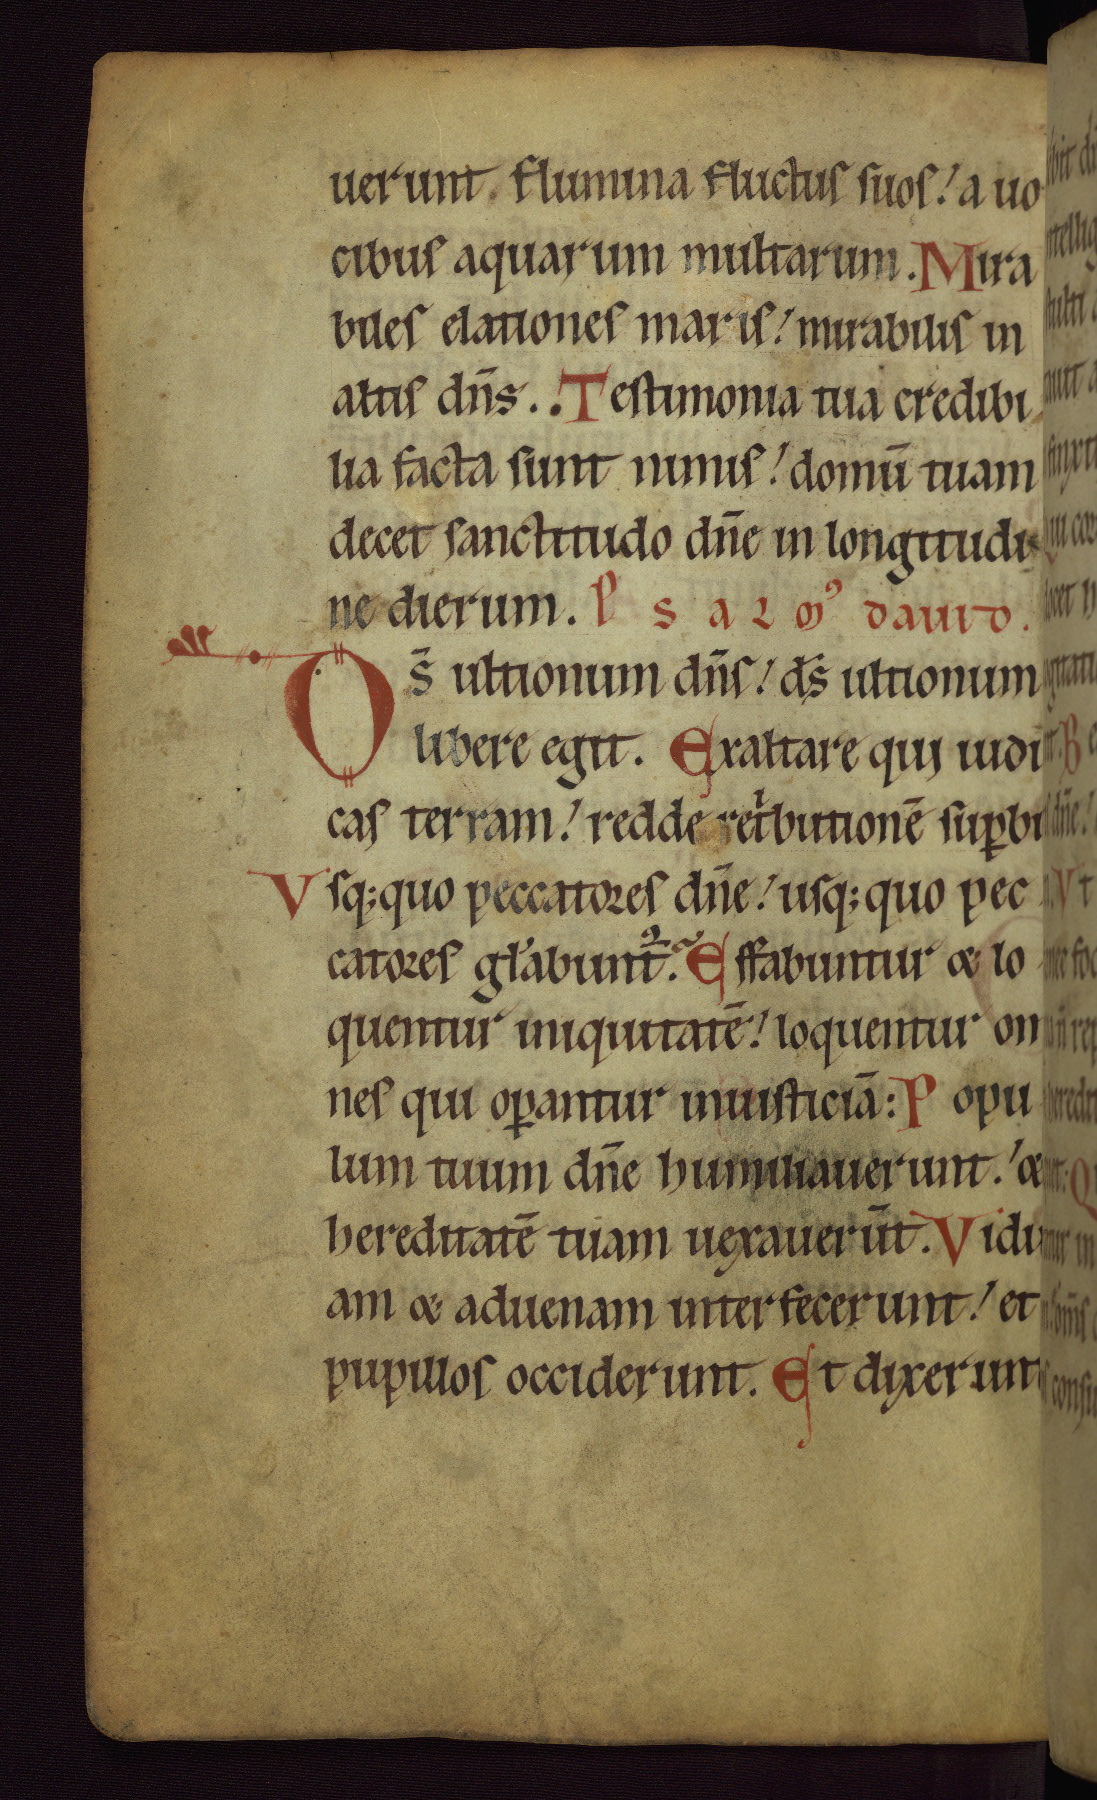 uerunt. flumina fluctus suos! a uo
cibus aquarum multarum. Mira
biles elationes maris! mirabilis in
altis dn̄s.. Testimonia tua credibi
lia facta sunt nimis! domū tuam
decet sanctitudo dn̄e in longitudi
ne dierum. P S A L Mꝰ DAUID.
Os̄ ultionum dn̄s! ds̄ ultionum
libere egit. Exaltare qui iudi
cas terram! redde ret'butionē sup̄bi
Vsq;quo peccatores dn̄e! usq;quo pec
catores gl'abunt̄ꝰ. Effabuntur & lo
quentur iniquitatē! loquentur om
nes qui op̄antur iniusticiā: Popu
lum tuum dn̄e humiliauerunt.! &
hereditatē tuam uexauerūt. Vidu
am & aduenam interfecerunt! et
pupillos occiderunt. Et dixerunt